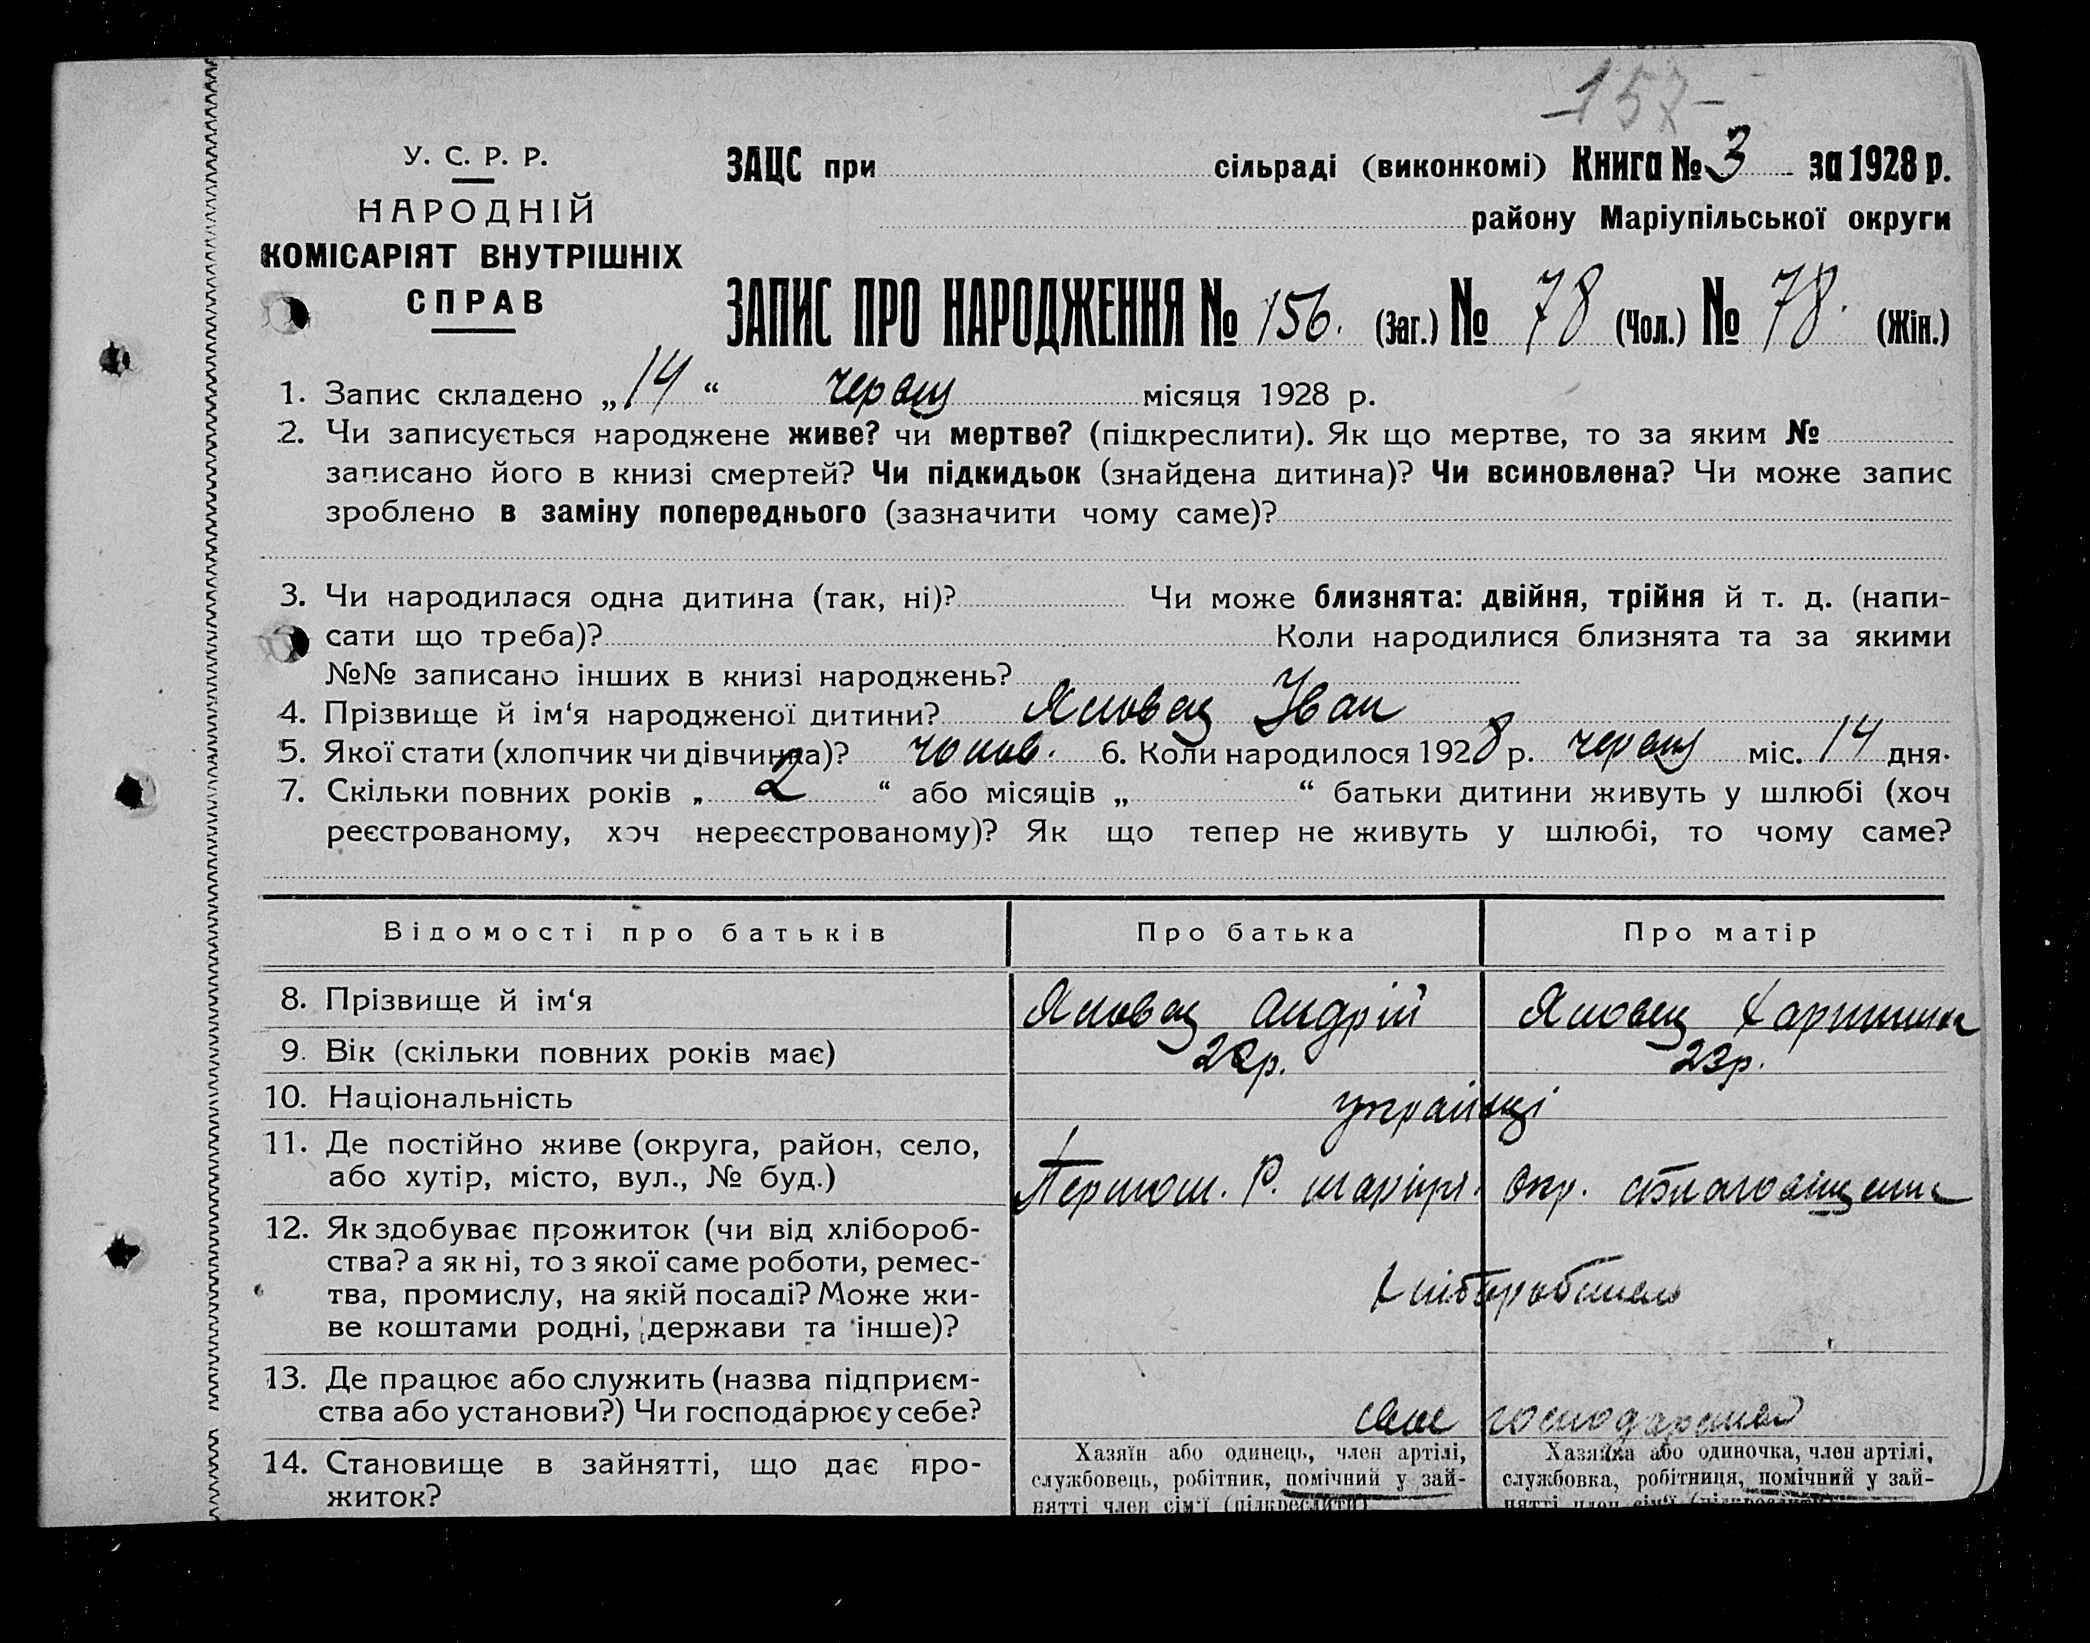 -157-
У. С. Р. Р.
НАРОДНІЙ
КОМІСАРІЯТ ВНУТРІШНІХ
СПРАВ
ЗАЦС при сільраді (виконкомі) Книга № 3 за 1928 р.
району Маріупільської округи
ЗАПИС ПРО НАРОДЖЕННЯ № 156. (Заг.) № 78 (Чол.) № 78. (Жін.)
1. Запис складено „14“ червця місяця 1928 р.
2. Чи записується народжене живе? чи мертве? (підкреслити). Як що мертве, то за яким №
записано його в книзі смертей? Чи підкидьок (знайдена дитина)? Чи всиновлена? Чи може запис
зроблено в заміну попереднього (зазначити чому саме)?
3. Чи народилася одна дитина (так, ні)? Чи може близнята: двійня, трійня й т. д. (напи-
сати що треба)? Коли народилися близнята та за якими
№№ записано інших в книзі народжень?
4. Прізвище й ім‘я народженої дитини? Яловец Іван
5. Якої стати (хлопчик чи дівчинка)? чолов. 6. Коли народилося 1928 р. червця міс. 14 дня.
7. Скільки повних років „ 2 “ або місяців „ “ батьки дитини живуть у шлюбі (хоч
реєстрованому, хоч нереєстрованому)? Як що тепер не живуть у шлюбі, то чому саме?
Відомості про батьків Про батька Про матір
8. Прізвище й ім‘я Яловец Андрій Яловец
9. Вік (скільки повних років має) 22р. 23р.
10. Національність українці
11. Де постійно живе (округа, район, село,
або хутір, місто, вул., № буд.) Р. маріуп. окр.
12. Як здобуває прожиток (чи від хлібороб-
ства? а як ні, то з якої саме роботи, ремес-
тва, промислу, на якій посаді? Може жи-
ве коштами родні, держави та інше)?
13. Де працює або служить (назва підприєм-
ства або установи?) Чи господарює у себе?
14. Становище в зайнятті, що дає про-
житок?
Хазяїн або одинець, член артілі,
службовець, робітник, помічний у зай-
нятті член сім‘ї (підкреслити)
Хазяйка або одиночка, член артілі,
службовка, робітниця, помічний у зай-
нятті член сім‘ї (підкреслити)